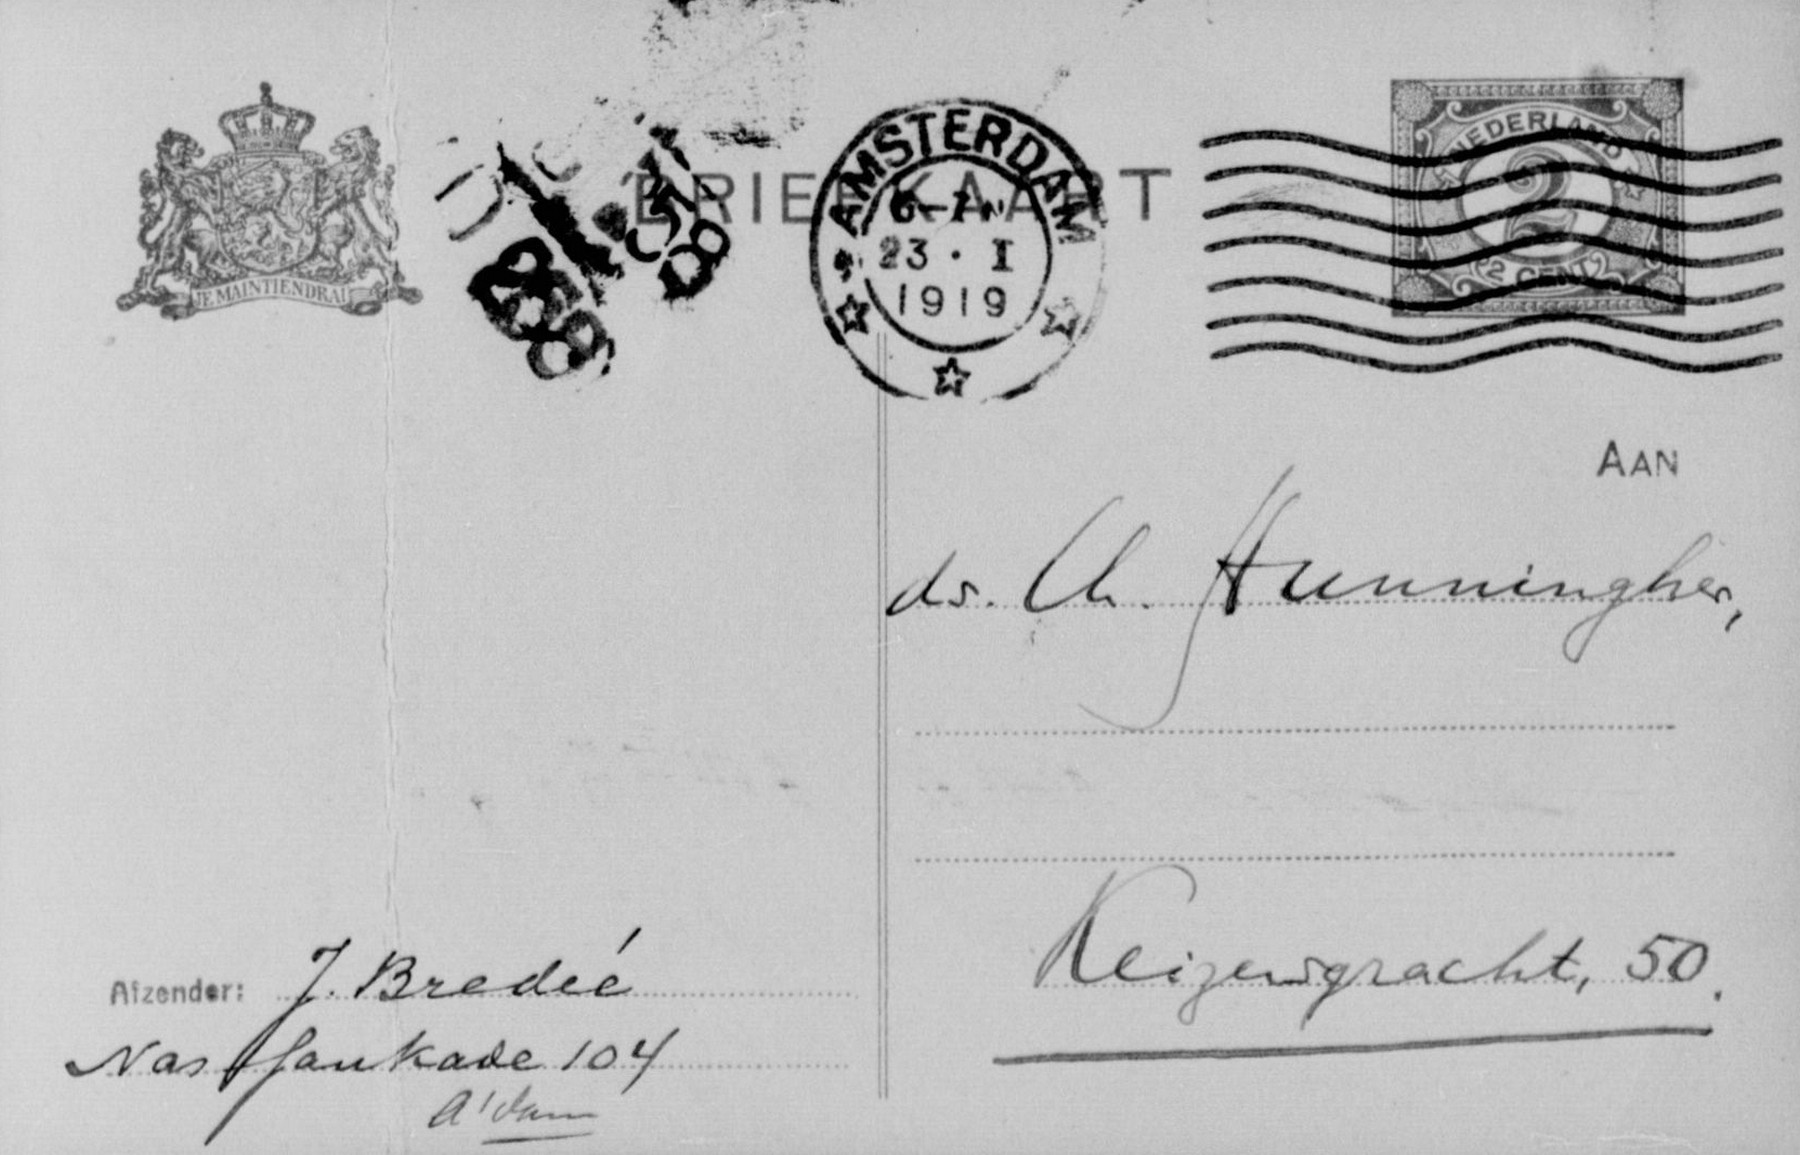 JE MAINTIENDRAI
BRIEFKAART
AMSTERDAM
6-7 N
23 · I
1919
NEDERLAND
2
2 CENT
AAN
ds. Ch. Hunningher,
Keizersgracht, 50.
Afzender: J. Bredéé
Nassaukade 104
A'dam